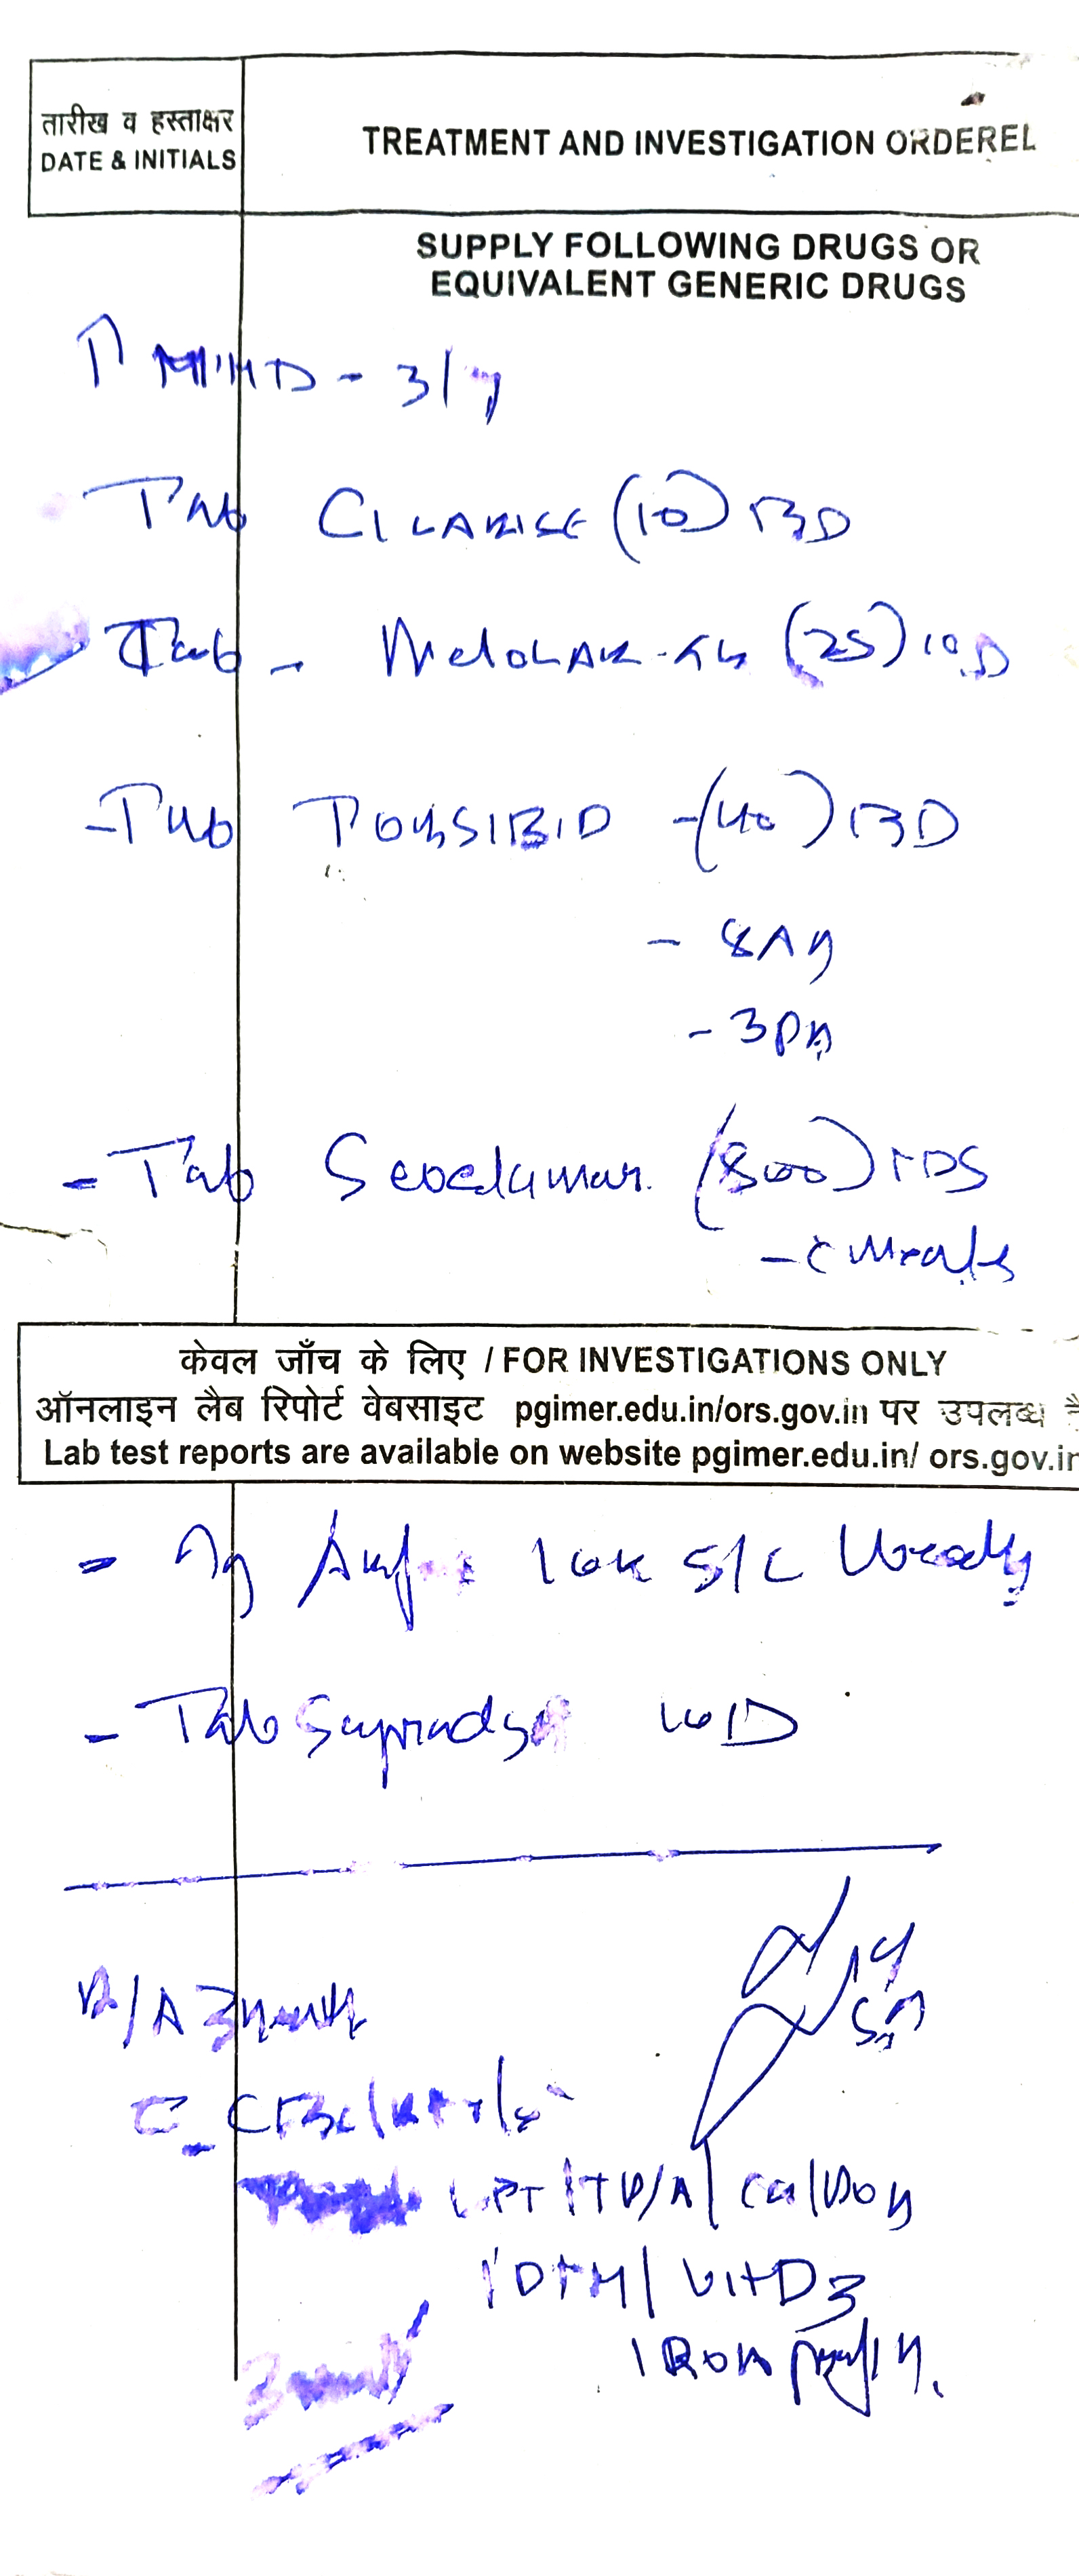 तारीख व हस्ताक्षर
DATE & INITIALS
TREATMENT AND INVESTIGATION ORDEREL
SUPPLY FOLLOWING DRUGS OR
EQUIVALENT GENERIC DRUGS
MHD - 3/7
Tab CILAKISE (10) BD
Tab - (25) OD
- Tab (40) BD
- 8AM
- 3PM
- Tab Sevelamer (800) TDS
- c meals
केवल जाँच के लिए / FOR INVESTIGATIONS ONLY
ऑनलाइन लैब रिपोर्ट वेबसाइट pgimer.edu.in/ors.gov.in पर उपलब्ध है
Lab test reports are available on website pgimer.edu.in/ ors.gov.in
- 10K S/C Weekly
- Tab Supradyn OD
R/A 3 month
c CBC / RFT / S
LFT / / Ca / PO4
iPTH / VitD3
IRON profile
3 month